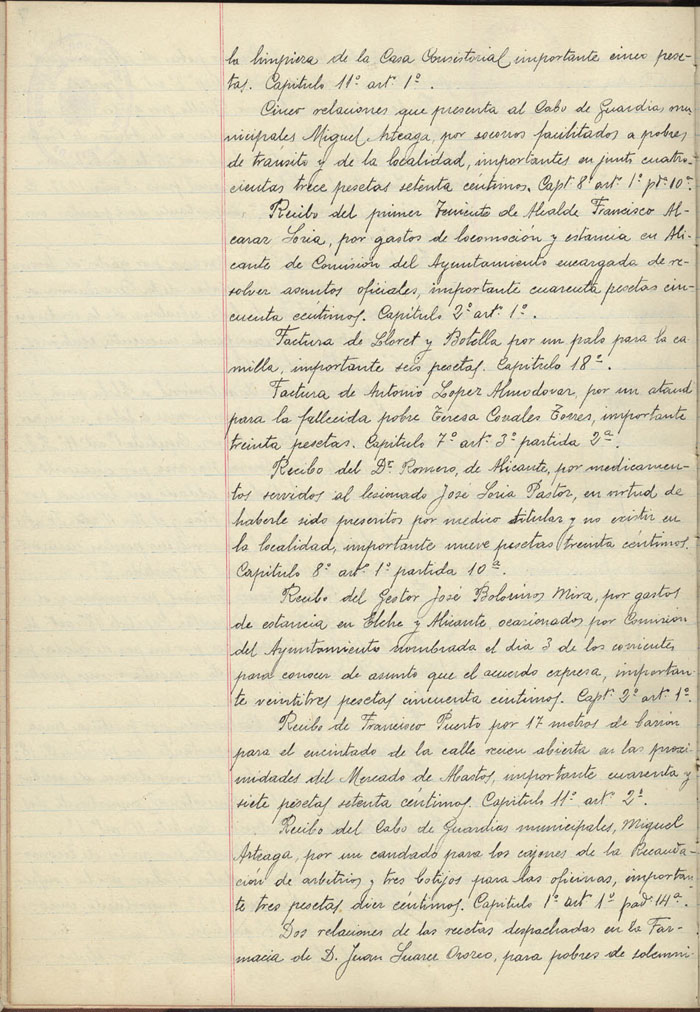 la limpieza de la Casa Consistorial importante cinco pese-
tas. Capitulo 11º artº 1º.
Cinco relaciones que presenta al Cabo de Guardias mu-
nicipales Miguel Arteaga, por socorros facilitados a pobres
de tránsito y de la localidad, importantes en junto cuatro-
cientas trece pesetas setenta céntimos. Captº 8º artº 1º ptª 10ª.
Recibo del primer Teniente de Alcalde Francisco Al-
caraz Soria, por gastos de locomoción y estancia en Ali-
cante de Comisión del Ayuntamiento encargada de re-
solver asuntos oficiales, importante cuarenta pesetas cin-
cuenta céntimos. Capitulo 2º artº 1º.
Factura de Lloret y Botella por un palo para la ca-
milla, importante seis pesetas. Capitulo 18º.
Factura de Antonio Lopez Almodovar, por un ataud
para la fallecida pobre Teresa Corrales Torres, importante
treinta pesetas. Capitulo 7º artº 3º partida 2ª.
Recibo del Dr. Romero, de Alicante, por medicamen-
tos servidos al lesionado José Soria Pastor, en virtud de
haberle sido prescritos por medico titular y no existir en
la localidad, importante nueve pesetas treinta céntimos.
Capitulo 8º artº 1º partida 10ª.
Recibo del Gestor José Mira, por gastos
de estancia en Elche y Alicante, ocasionados por Comisión
del Ayuntamiento nombrada el dia 3 de los corrientes
para conocer de asunto que el acuerdo expresa, importan-
te veintitres pesetas cincuenta centimos. Captº 2º artº 1º.
Recibo de Francisco Puerto por 17 metros de
para el encintado de la calle recien abierta en las proxi-
midades del Mercado de Abastos, importante cuarenta y
siete pesetas setenta céntimos. Capitulo 11º artº 2º.
Recibo del Cabo de Guardias municipales, Miguel
Arteaga, por un candado para los cajones de la Recauda-
ción de arbitrios y tres botijos para las oficinas, importan-
te tres pesetas diez céntimos. Capitulo 1º artº 1º 14ª.
Dos relaciones de las recetas despachadas en la Far-
macia de D. Juan Suarez Orozco, para pobres de solemni-